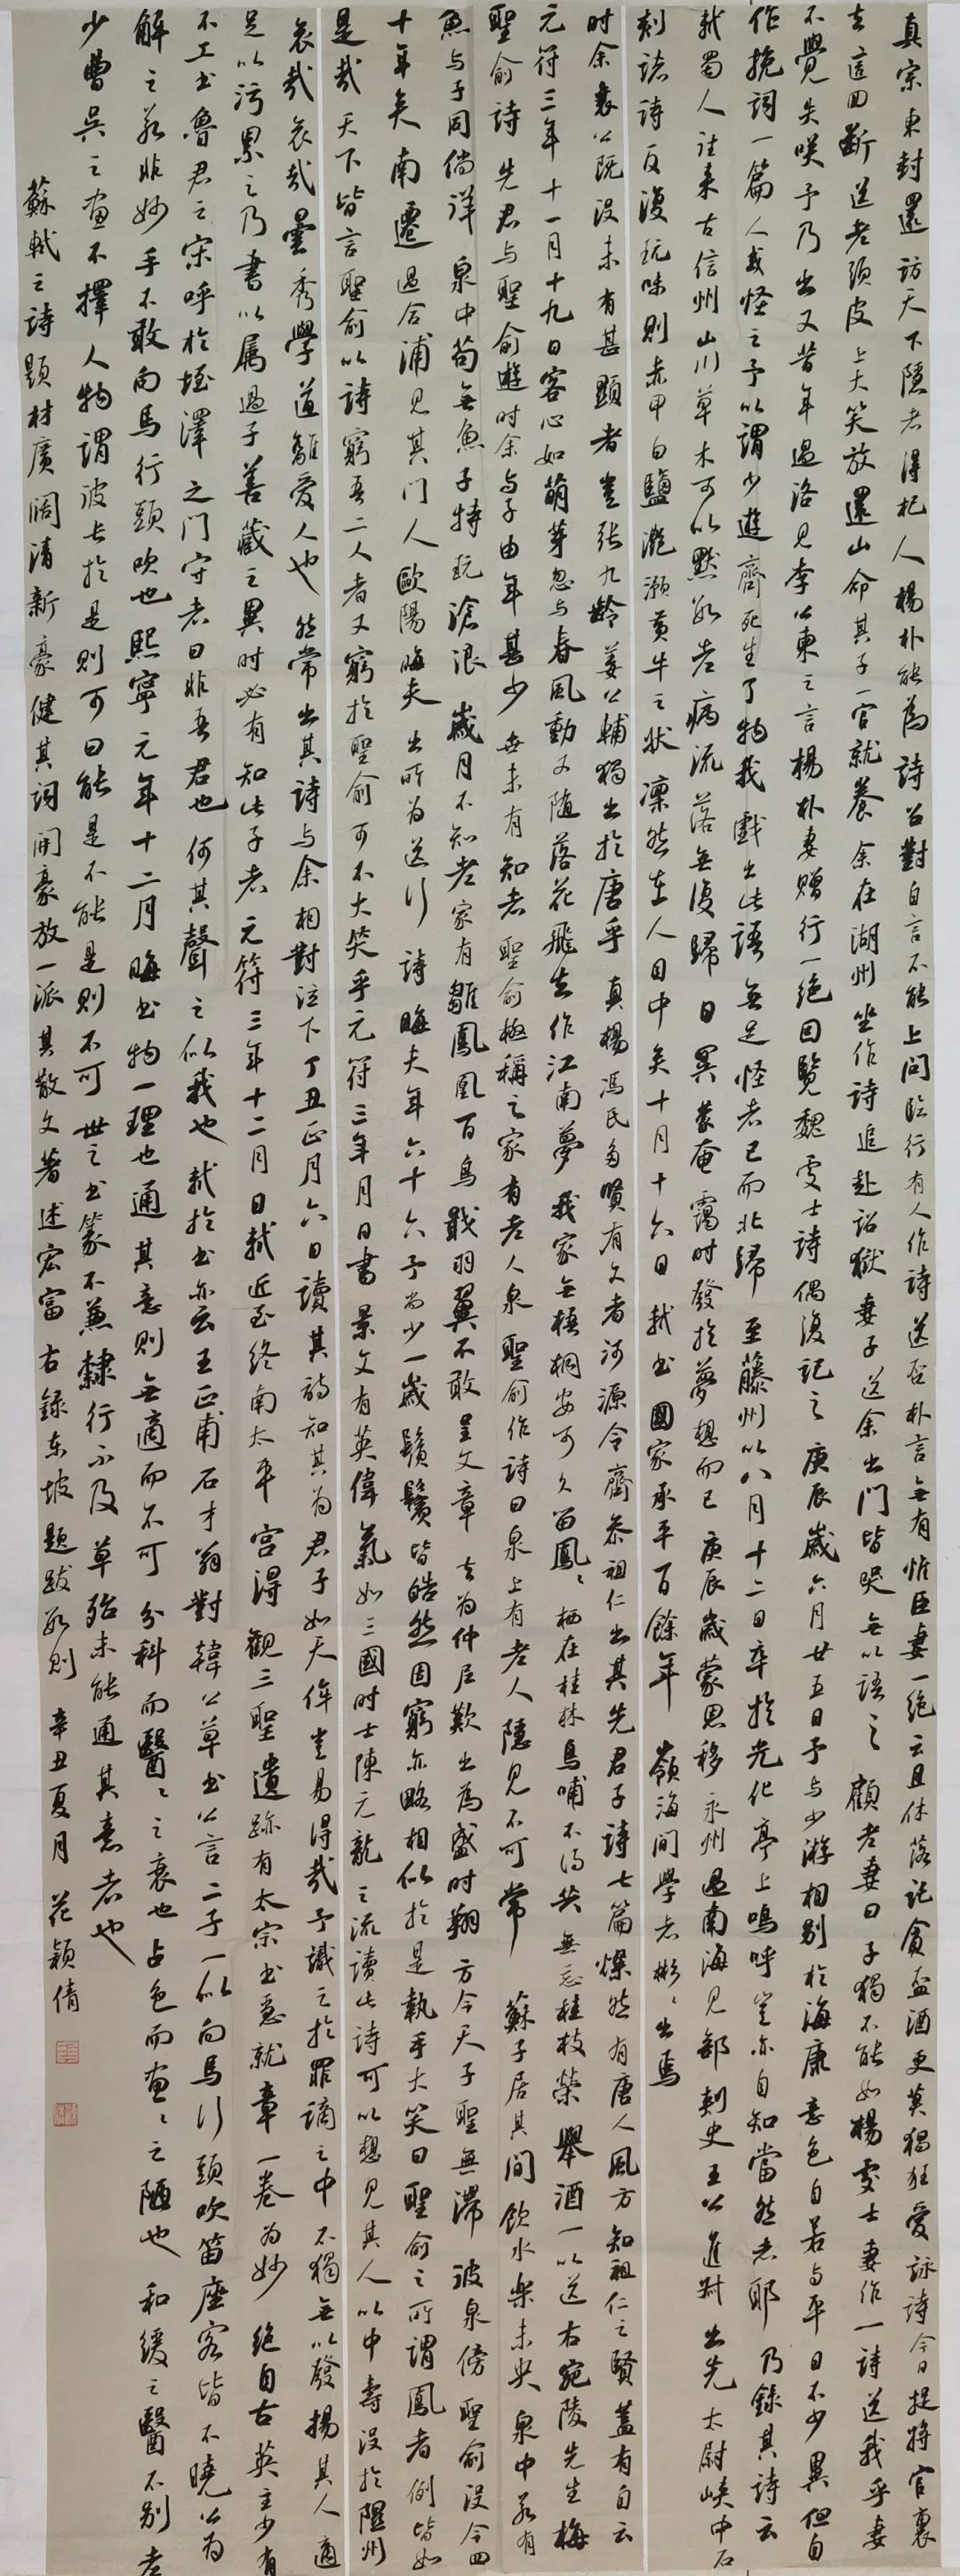 真宗東封還訪天下隱者得杞人楊朴能為詩召對自言不能上問臨行有人作詩送否朴言無有惟臣妻一絕云且休落託貪盃酒更莫猖狂愛詠詩今日捉將官裏
去這回斷送老頭皮上大笑放還山命其子一官就養余在湖州坐作詩追赴詔獄妻子送余出門皆哭無以語之顧老妻曰子獨不能如楊處士妻作一詩送我乎妻
不覺失咲予乃出又昔年過洛見李公東之言楊朴妻贈行一絕因覽魏處士詩偶復記之庚辰歲六月廿五日予与少游相別於海康意色自若与平日不少異但自
作挽詞一篇人或怪之予以謂少遊齊死生了物我戲出此語無足怪者已而北歸至藤州以八月十二日卒於光化亭上嗚呼豈亦自知當然者耶乃錄其詩云
軾蜀人往來古信州山川草木可以默數老病流落無復歸日冥蒙奄靄時發於夢想而已庚辰歲蒙恩移永州過南海見部刺史王公進叔出先太尉峽中石
刻諸詩反復玩味則赤甲白鹽灧澦黃牛之狀凜然在人目中矣十月十六日軾書國家承平百餘年嶺海間學者彬彬出焉
时余襄公既没未有甚顯者豈張九齡姜公輔獨出於唐乎真楊馮氏多賢有文者河源令齊參祖仁出其先君子詩七篇燦然有唐人風方知祖仁之賢蓋有自云
元符三年十一月十九日客心如萌芽忽与春風動又隨落花飛去作江南夢我家無梧桐安可久留鳳鳳栖在桂林烏哺不得共無忘桂枝榮舉酒一以送右宛陵先生梅
聖俞詩先君与聖俞遊时余与子由年甚少世未有知者聖俞極稱之家有老人泉聖俞作詩曰泉上有老人隱見不可常蘇子居其間飲水樂未央泉中若有
魚与子同徜徉泉中苟無魚子特玩滄浪歲月不知老家有雛鳳凰百鳥戢羽翼不敢呈文章去為仲尼歎出為盛时翔方今天子聖無滯彼泉傍聖俞没今四
十年矣南遷過合浦見其門人歐陽晦夫出所為送行詩晦夫年六十六予尚少一歲鬚鬢皆皓然固窮亦略相似於是執手大笑曰聖俞之所謂鳳者例皆如
是哉天下皆言聖俞以詩窮吾二人者又窮於聖俞可不大笑乎元符三年月日書景文有英偉氣如三國时士陳元龍之流讀此詩可以想見其人以中壽没於隰州
哀哉哀哉曇秀學道離愛人也然常出其詩与余相對泣下丁丑正月六日讀其詩知其為君子如天侔豈易得哉予識之於罪謫之中不獨無以發揚其人適
足以污累之乃書以属過子善藏之異时必有知此子者元符三年十二月日軾近至終南太平宮得觀三聖遺跡有太宗書急就章一卷為妙絕自古英主少有
不工書魯君之宋呼於垤澤之門守者曰非吾君也何其聲之似我也軾於書亦云王正甫石才翁對韓公草書公言二子一似向馬行頭吹笛座客皆不曉公為
解之若非妙手不敢向馬行頭吹也熙寧元年十二月晦書物一理也通其意則無適而不可分科而醫醫之衰也占色而畫畫之陋也和緩之醫不別老
少曹吳之畫不擇人物謂彼长於是則可曰能是不能是則不可世之書篆不兼隸行不及草殆未能通其意者也
蘇軾之詩題材廣闊清新豪健其詞開豪放一派其散文著述宏富右錄东坡題跋數則辛丑夏月花穎倩